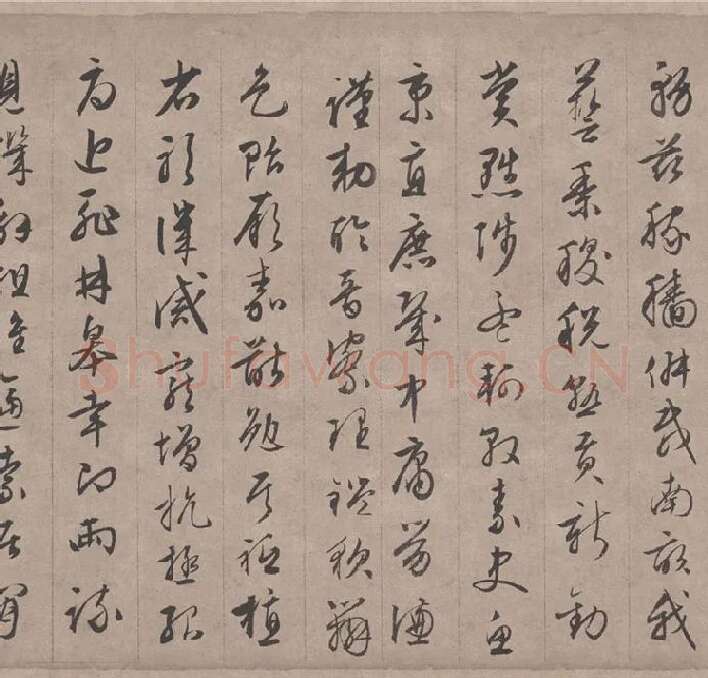 務茲稼穡俶載南畝我
藝黍稷稅熟貢新勸
賞黜陟孟軻敦素史魚
秉直庶幾中庸勞謙
謹敕聆音察理鑑貌辨
色貽厥嘉猷勉其祗植
省躬譏誡寵增抗極殆
辱近恥林皋幸即兩疏
見機解組誰逼索居閒
shufawang.CN